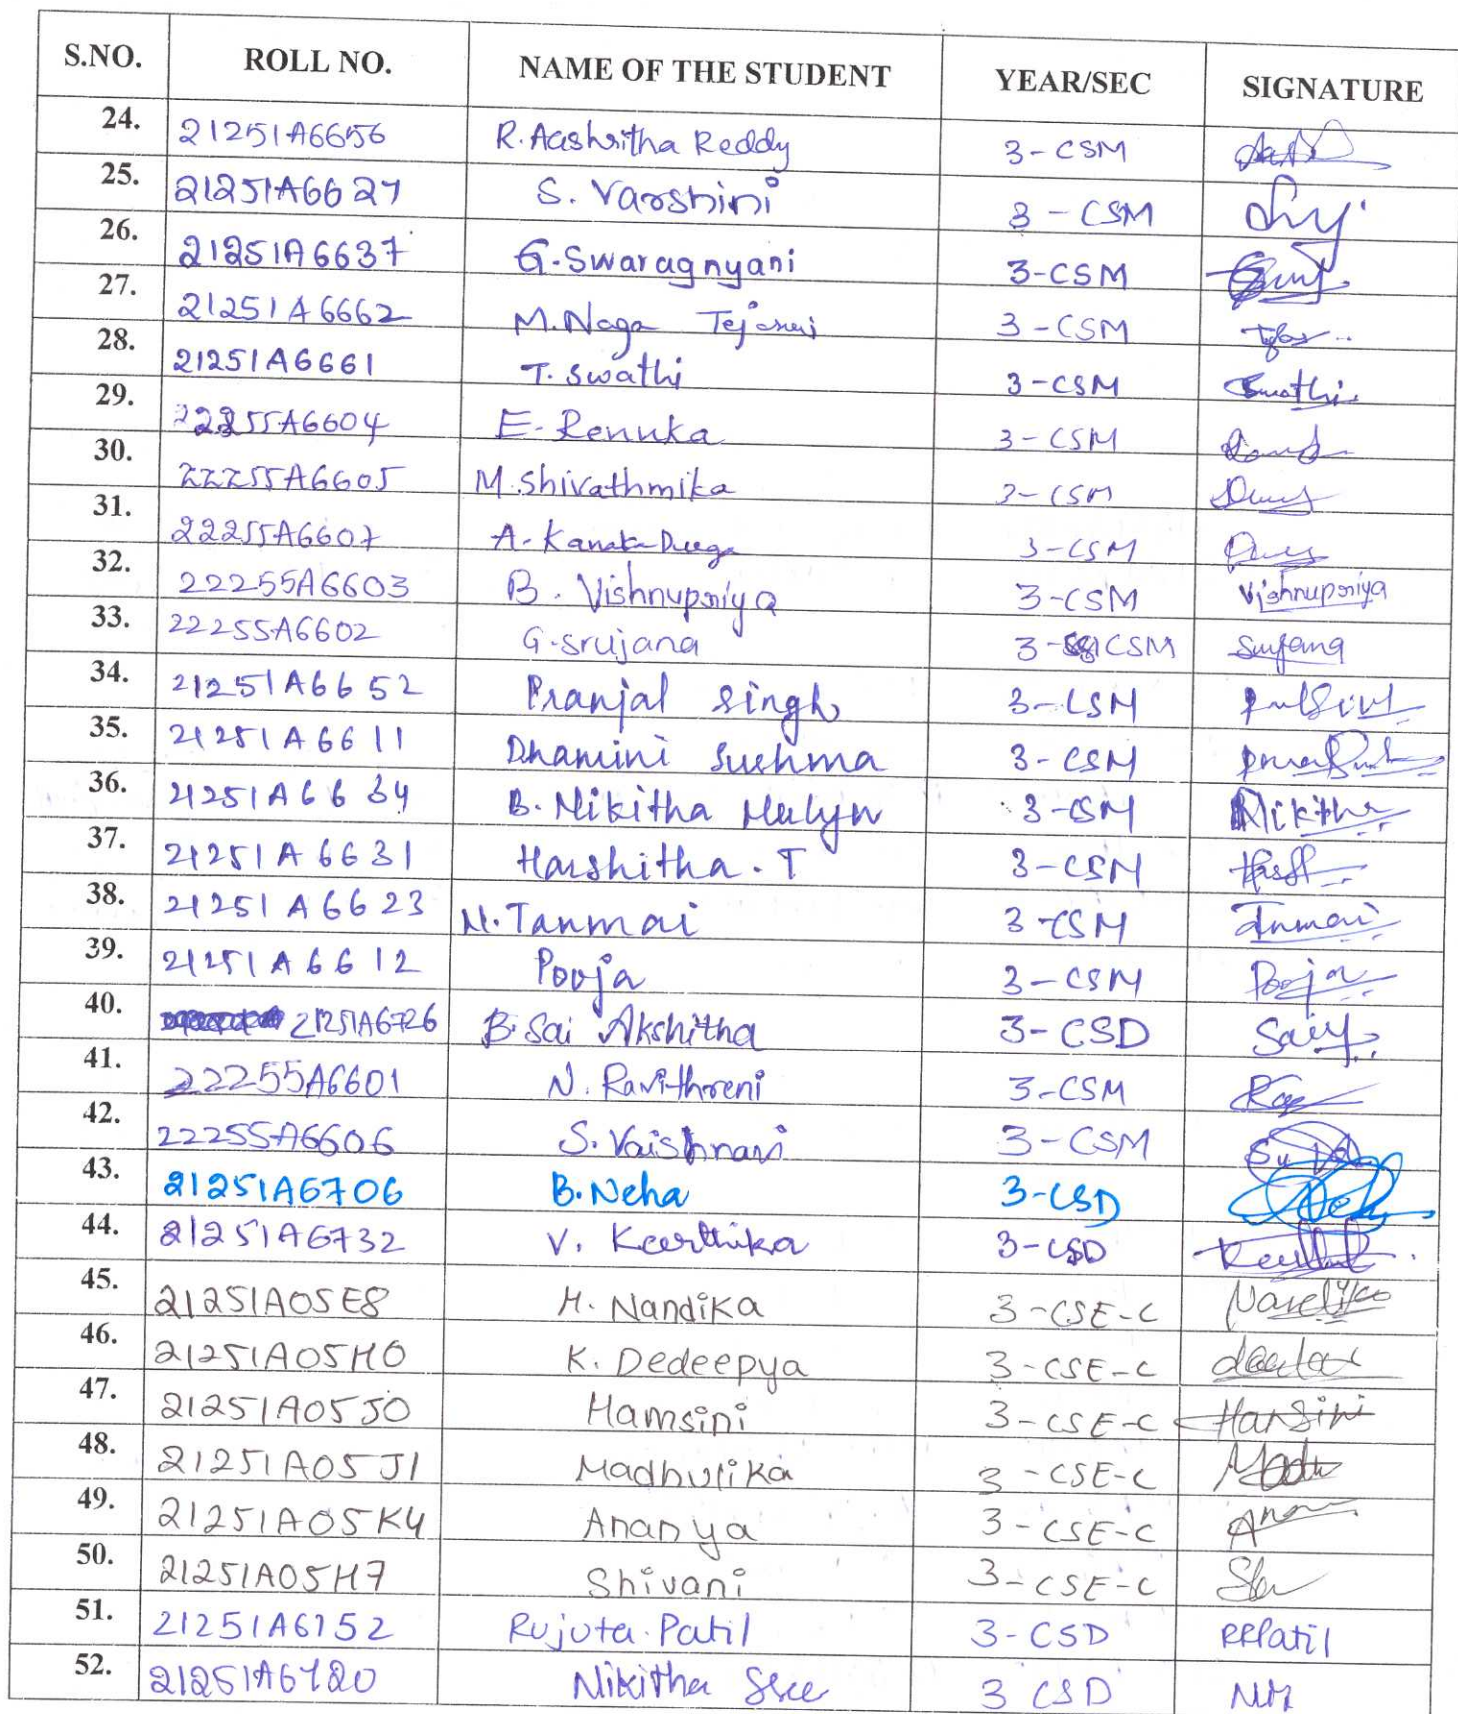 S.NO. ROLL NO. NAME OF THE STUDENT YEAR/SEC SIGNATURE
24. 21251A6656 R. Aashritha Reddy 3-CSM
25. 21251A6627 S. Varshini 3-CSM
26. 21251A6637 G. Swaragnyani 3-CSM
27. 21251A6662 M. Naga Tejaswi 3-CSM
28. 21251A6661 T. Swathi 3-CSM Swathi
29. 22255A6604 E. Renuka 3-CSM
30. 22255A6605 M. Shivathmika 3-CSM
31. 22255A6607 A. Kanaka Durga 3-CSM
32. 22255A6603 B. Vishnupriya 3-CSM Vishnupriya
33. 22255A6602 G. srujana 3-CSM Srujana
34. 21251A6652 Pranjal Singh 3-CSM
35. 21251A6611 Dhamini Sushma 3-CSM
36. 21251A6634 B. Nikitha 3-CSM Nikitha
37. 21251A6631 Harshitha. T 3-CSM
38. 21251A6623 N. Tanmai 3-CSM Tanmai
39. 21251A6612 Pooja 3-CSM Pooja
40. 21251A6726 B. Sai Akshitha 3-CSD
41. 22255A6601 N. 3-CSM
42. 22255A6606 S. Vaishnavi 3-CSM
43. 21251A6706 B. Neha 3-CSD
44. 21251A6732 V. Keerthika 3-CSD
45. 21251A05E8 H. Nandika 3-CSE-C
46. 21251A05H0 K. Dedeepya 3-CSE-C
47. 21251A05J0 Hamsini 3-CSE-C Hamsini
48. 21251A05J1 Madhulika 3-CSE-C
49. 21251A05K4 Ananya 3-CSE-C
50. 21251A05H7 Shivani 3-CSE-C
51. 21251A6752 Rujuta Patil 3-CSD RRPatil
52. 21251A6720 Nikitha Sree 3 CSD